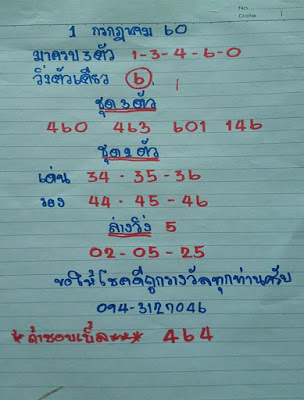 No
Date
1 กรกฎาคม 60
มาครบ 3 ตัว 1-3-4-6-0
วิ่งตัวเดียว 6 1
ชุด 3 ตัว
460 463 601 146
ชุด 2 ตัว
เด่น 34-35-36
รอง 44-45-46
ล่างวิ่ง 5
02-05-25
ขอให้โชคดีถูกรางวัลทุกท่านครับ
094-3127046
*ถ้าชอบเบิ้ล*** 464